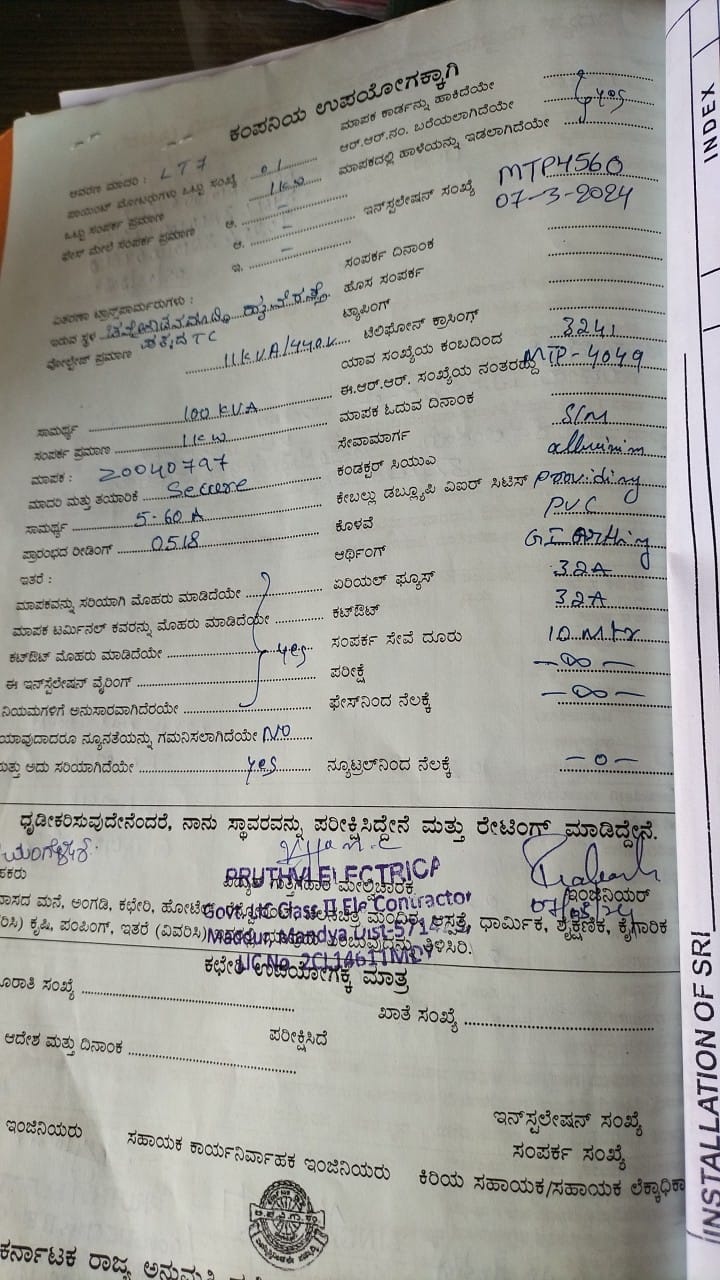 ಕಂಪನಿಯ ಉಪಯೋಗಕ್ಕಾಗಿ
ಆವರಣ ಮಾದರಿ : LT7
ಪಾಯಿಂಟ್ ಮೋಟರುಗಳು ಒಟ್ಟು ಸಂಖ್ಯೆ 01
ಒಟ್ಟು ಸಂಪರ್ಕ ಪ್ರಮಾಣ 1KW
ಫೇಸ್ ಮೇಲೆ ಸಂಪರ್ಕ ಪ್ರಮಾಣ ಅ. –
ಆ. –
ಇ. –
ವಿತರಣಾ ಟ್ರಾನ್ಸ್‌ಫಾರ್ಮರುಗಳು :
ಇರುವ ಸ್ಥಳ
TC
ವೋಲ್ಟೇಜ್ ಪ್ರಮಾಣ 11KVA/440V
ಸಾಮರ್ಥ್ಯ 100 KVA
ಸಂಪರ್ಕ ಪ್ರಮಾಣ 1KW
ಮಾಪಕ : 20040797
ಮಾದರಿ ಮತ್ತು ತಯಾರಿಕೆ Secure
ಸಾಮರ್ಥ್ಯ 5-60A
ಪ್ರಾರಂಭದ ರೀಡಿಂಗ್ 0518
ಇತರೆ :
ಮಾಪಕವನ್ನು ಸರಿಯಾಗಿ ಮೊಹರು ಮಾಡಿದೆಯೇ
ಮಾಪಕ ಟರ್ಮಿನಲ್ ಕವರನ್ನು ಮೊಹರು ಮಾಡಿದೆಯೇ
ಕಟ್‌ಔಟ್ ಮೊಹರು ಮಾಡಿದೆಯೇ yes
ಈ ಇನ್‌ಸ್ಟಲೇಷನ್ ವೈರಿಂಗ್
ನಿಯಮಗಳಿಗೆ ಅನುಸಾರವಾಗಿದೆರಯೇ
ಯಾವುದಾದರೂ ನ್ಯೂನತೆಯನ್ನು ಗಮನಿಸಲಾಗಿದೆಯೇ NO
ಮತ್ತು ಅದು ಸರಿಯಾಗಿದೆಯೇ yes
ಮಾಪಕ ಕಾರ್ಡನ್ನು ಹಾಕಿದೆಯೇ
ಆರ್.ಆರ್.ನಂ. ಬರೆಯಲಾಗಿದೆಯೇ yes
ಮಾಪಕದಲ್ಲಿ ಹಾಳೆಯನ್ನು ಇಡಲಾಗಿದೆಯೇ
ಇನ್‌ಸ್ಟಲೇಷನ್ ಸಂಖ್ಯೆ MTP4560
07-3-2024
ಸಂಪರ್ಕ ದಿನಾಂಕ
ಹೊಸ ಸಂಪರ್ಕ
ಟ್ಯಾಪಿಂಗ್
ಟೆಲಿಫೋನ್ ಕ್ರಾಸಿಂಗ್
ಯಾವ ಸಂಖ್ಯೆಯ ಕಂಬದಿಂದ 3241
ಈ.ಆರ್.ಆರ್. ಸಂಖ್ಯೆಯ ನಂತರದ್ದು MTP-4049
ಮಾಪಕ ಓದುವ ದಿನಾಂಕ
ಸೇವಾಮಾರ್ಗ S/M
ಕಂಡಕ್ಟರ್ ಸಿಯುವಿ
ಕೇಬಲ್ಲು ಡಬ್ಲ್ಯೂಪಿ ವಿಐರ್ ಸಿಟಿಸ್ Providing
ಕೊಳವೆ PVC
ಆರ್ಥಿಂಗ್ GI Arthing
ಏರಿಯಲ್ ಫ್ಯೂಸ್ 32A
ಕಟ್‌ಔಟ್ 32A
ಸಂಪರ್ಕ ಸೇವೆ ದೂರು 10 Mtr
ಪರೀಕ್ಷೆ -∞-
ಫೇಸ್‌ನಿಂದ ನೆಲಕ್ಕೆ -∞-
ನ್ಯೂಟ್ರಲ್‌ನಿಂದ ನೆಲಕ್ಕೆ -0-
ಧೃಡೀಕರಿಸುವುದೇನೆಂದರೆ, ನಾನು ಸ್ಥಾವರವನ್ನು ಪರೀಕ್ಷಿಸಿದ್ದೇನೆ ಮತ್ತು ರೇಟಿಂಗ್ ಮಾಡಿದ್ದೇನೆ.
ಮೇಲ್ವಿಚಾರಕ
ಇಂಜಿನಿಯರ್
PRUTHVI ELECTRICA
Govt. LIC Class II Ele Contractor
Maddur, Mandya Dist-5714
LIC No. 2CL14611MDY
ವಾಸದ ಮನೆ, ಅಂಗಡಿ, ಕಛೇರಿ, ಹೋಟೆಲ್, ಮಂದಿರ, ಆಸ್ಪತ್ರೆ, ಧಾರ್ಮಿಕ, ಶೈಕ್ಷಣಿಕ, ಕೈಗಾರಿಕ
ಕೃಷಿ, ಪಂಪಿಂಗ್, ಇತರೆ (ವಿವರಿಸಿ) ತಿಳಿಸಿರಿ.
ಕಛೇರಿ ಉಪಯೋಗಕ್ಕೆ ಮಾತ್ರ
ಖಾತೆ ಸಂಖ್ಯೆ
ಆದೇಶ ಮತ್ತು ದಿನಾಂಕ
ಪರೀಕ್ಷಿಸಿದೆ
ಇನ್‌ಸ್ಟಲೇಷನ್ ಸಂಖ್ಯೆ
ಸಂಪರ್ಕ ಸಂಖ್ಯೆ
ಇಂಜಿನಿಯರು ಸಹಾಯಕ ಕಾರ್ಯನಿರ್ವಾಹಕ ಇಂಜಿನಿಯರು ಕಿರಿಯ ಸಹಾಯಕ/ಸಹಾಯಕ ಲೆಕ್ಕಾಧಿಕಾ
ಕರ್ನಾಟಕ ರಾಜ್ಯ ಅನುಮತಿ
INDEX
INSTALLATION OF SRI